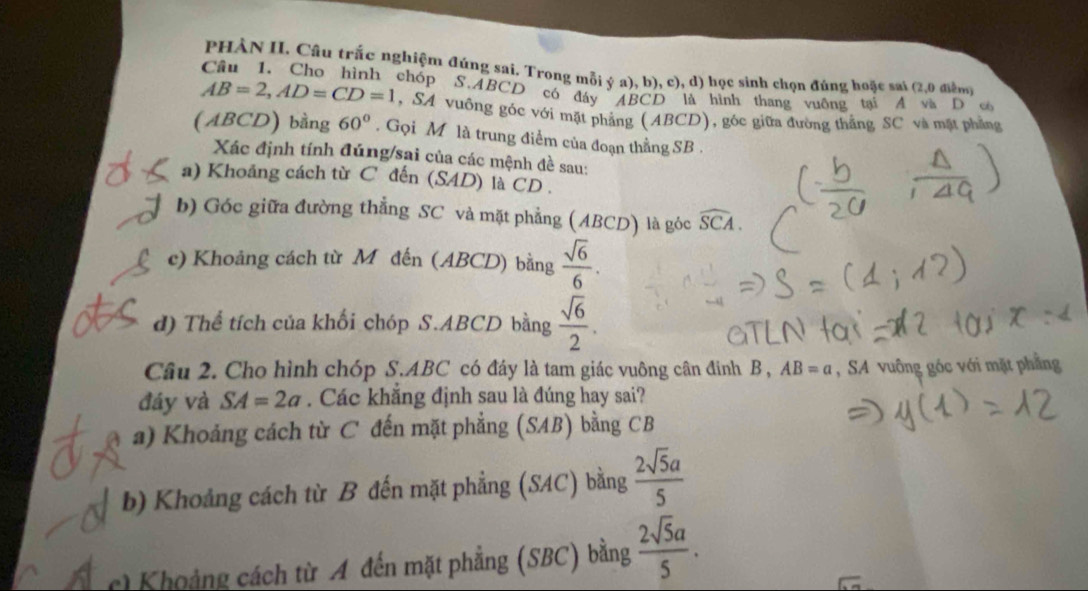 PHẦN II. Câu trắc nghiệm đúng sai. Trong mỗi ý a), b), c), d) học sinh chọn đúng hoặc sai (2,0 điểm)
Câu 1. Cho hình chóp S.ABCD có đáy ABCD là hình thang vuông tại A và D có
AB = 2, AD = CD = 1, SA vuông góc với mặt phẳng (ABCD), góc giữa đường thẳng SC và mặt phẳng
(ABCD) bằng 60⁰. Gọi M là trung điểm của đoạn thẳng SB.
Xác định tính đúng/sai của các mệnh đề sau:
a) Khoảng cách từ C đến (SAD) là CD.
(-b/2a ; Δ/4a)
d b) Góc giữa đường thẳng SC và mặt phẳng (ABCD) là góc SCA.
S c) Khoảng cách từ M đến (ABCD) bằng √6/6.
=> S = (1; 12)
d) Thể tích của khối chóp S.ABCD bằng √6/2.
GTLN tại = 12 tại x =
Câu 2. Cho hình chóp S.ABC có đáy là tam giác vuông cân đỉnh B, AB = a, SA vuông góc với mặt phẳng
đáy và SA = 2a. Các khẳng định sau là đúng hay sai?
=> y(1) = 12
a) Khoảng cách từ C đến mặt phẳng (SAB) bằng CB
d b) Khoảng cách từ B đến mặt phẳng (SAC) bằng 2√5a/5
c) Khoảng cách từ A đến mặt phẳng (SBC) bằng 2√5a/5.